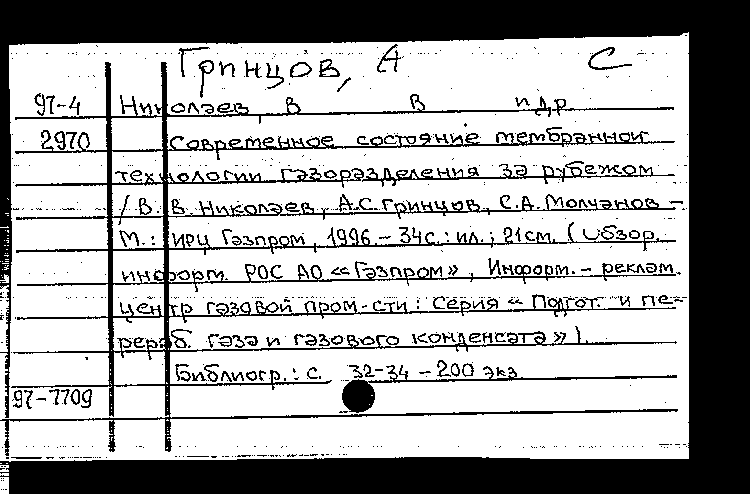 Гринцов, А С
97-4 Николаев, В В и др
2970 Современное состояние мембранной
технологии газоразделения за рубежом
/ В. В. Николаев, А.С. Гринцов, С.А. Молчанов –
М.: ИРЦ Газпром, 1996. – 34с.: ил.; 21см. (Обзор.
информ. РОС АО «Газпром», Информ.- реклам.
центр газовой пром-сти: Серия «Подгот. и пе-
рераб. газа и газового конденсата»)
Библиогр.: с. 32-34 – 200 экз
97-7709